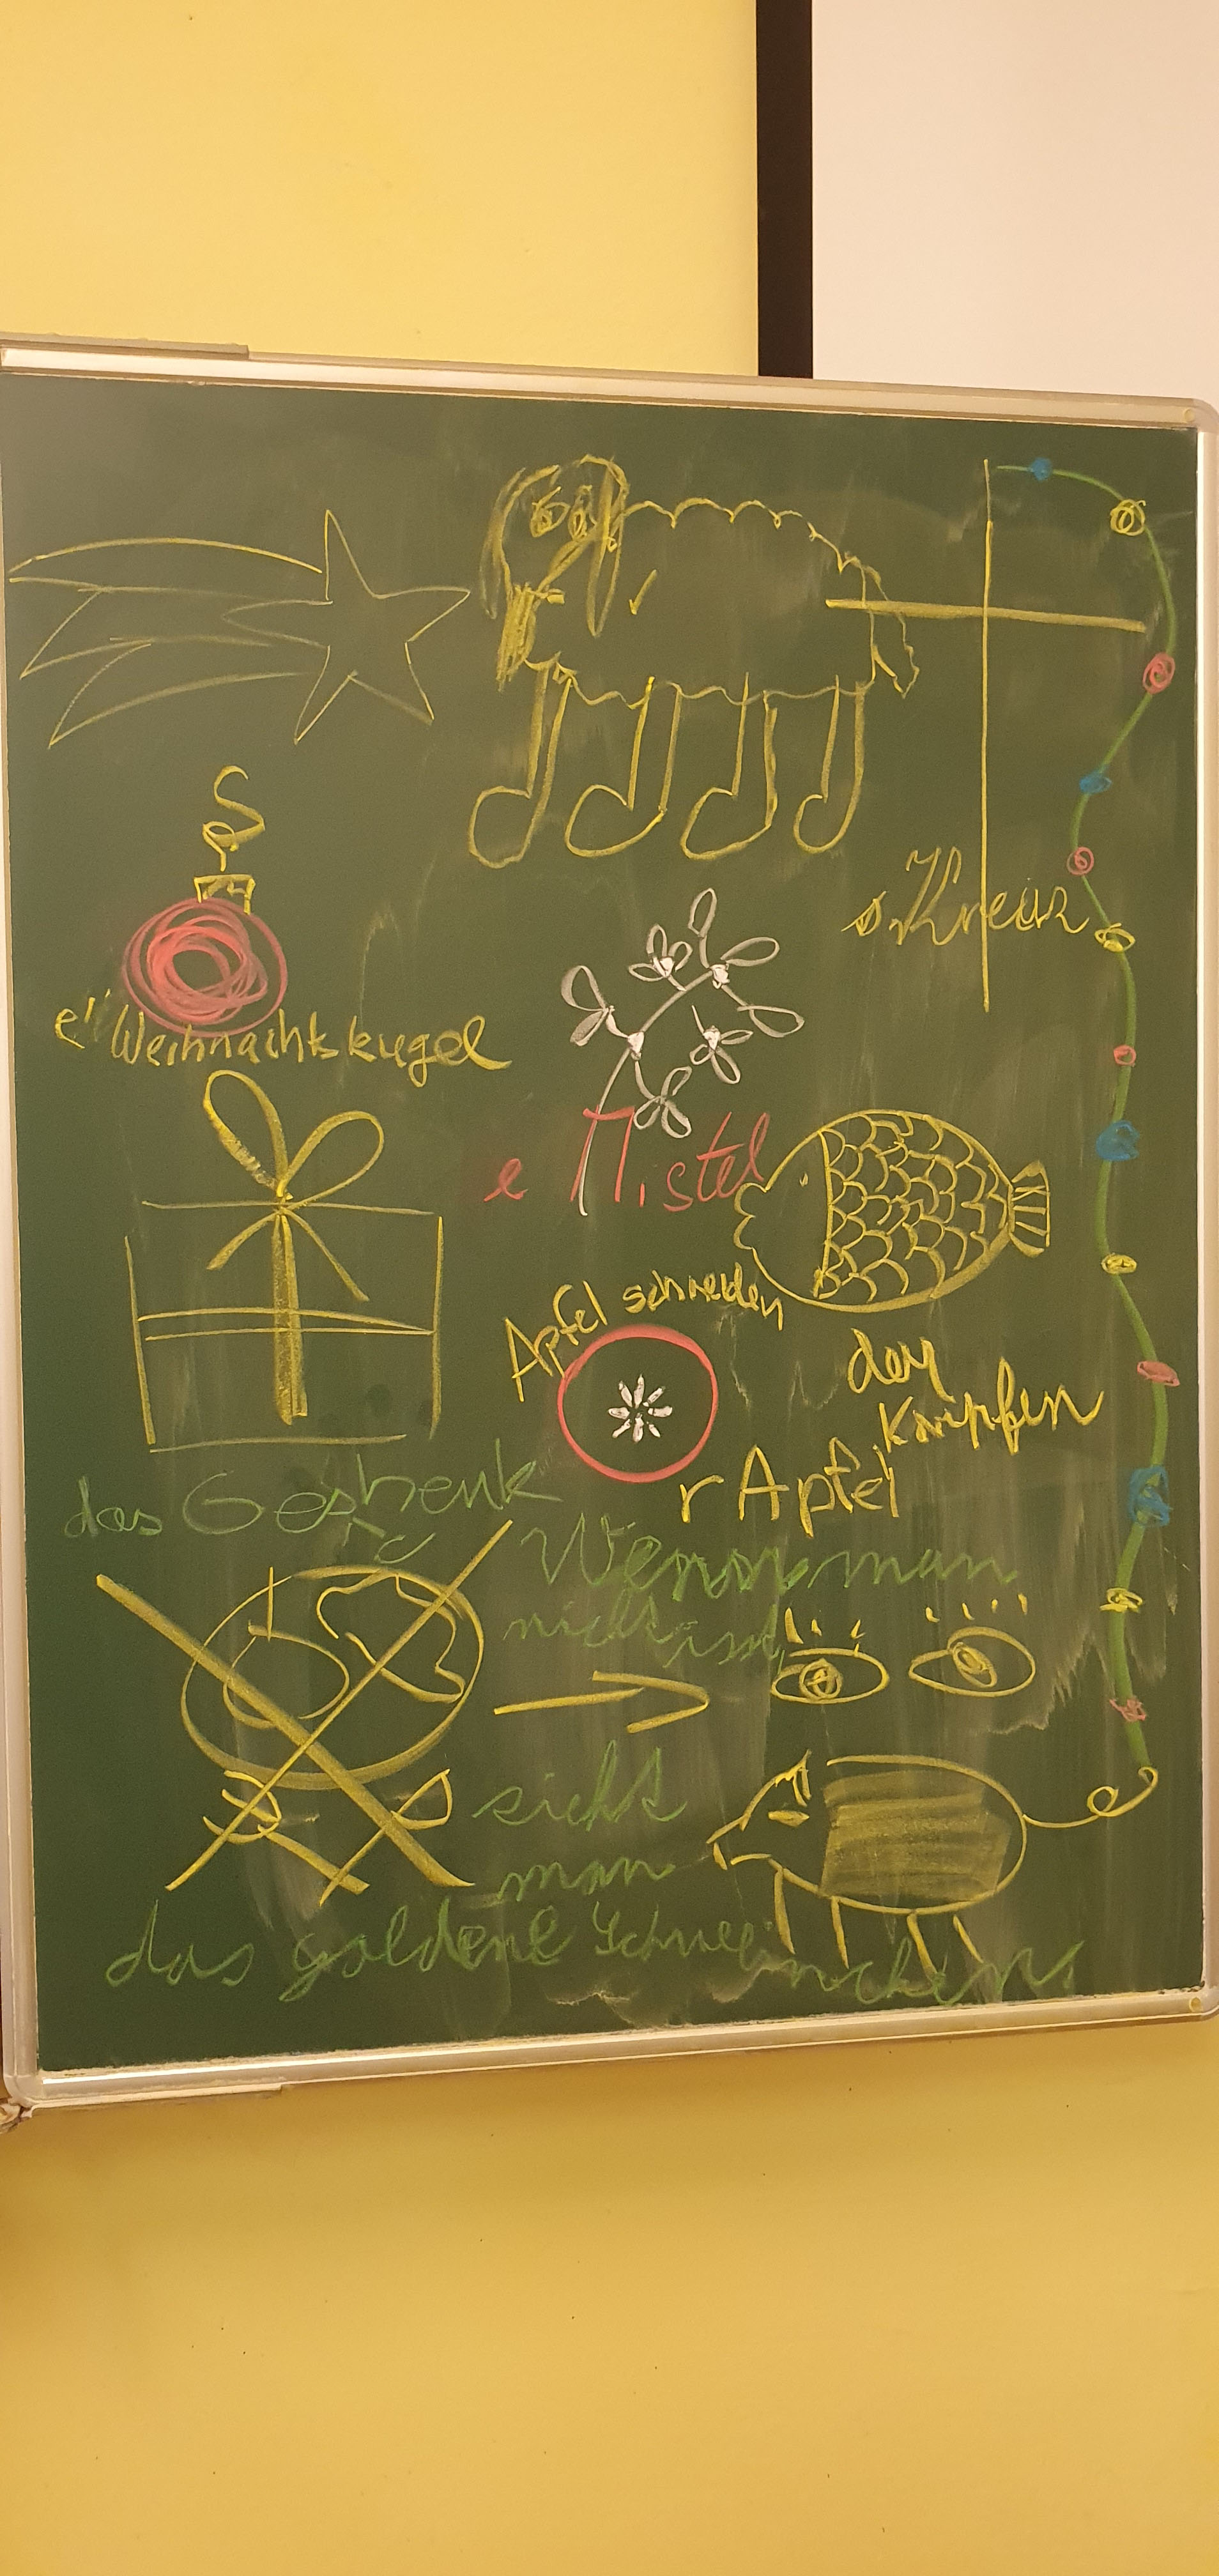 s Kreuz
e Weihnachtskugel
e Mistel
Apfel schneiden
der
Karpfen
r Apfel
das Geschenk
Wenn man
nicht isst
sieht
man
das goldene Schweinchen